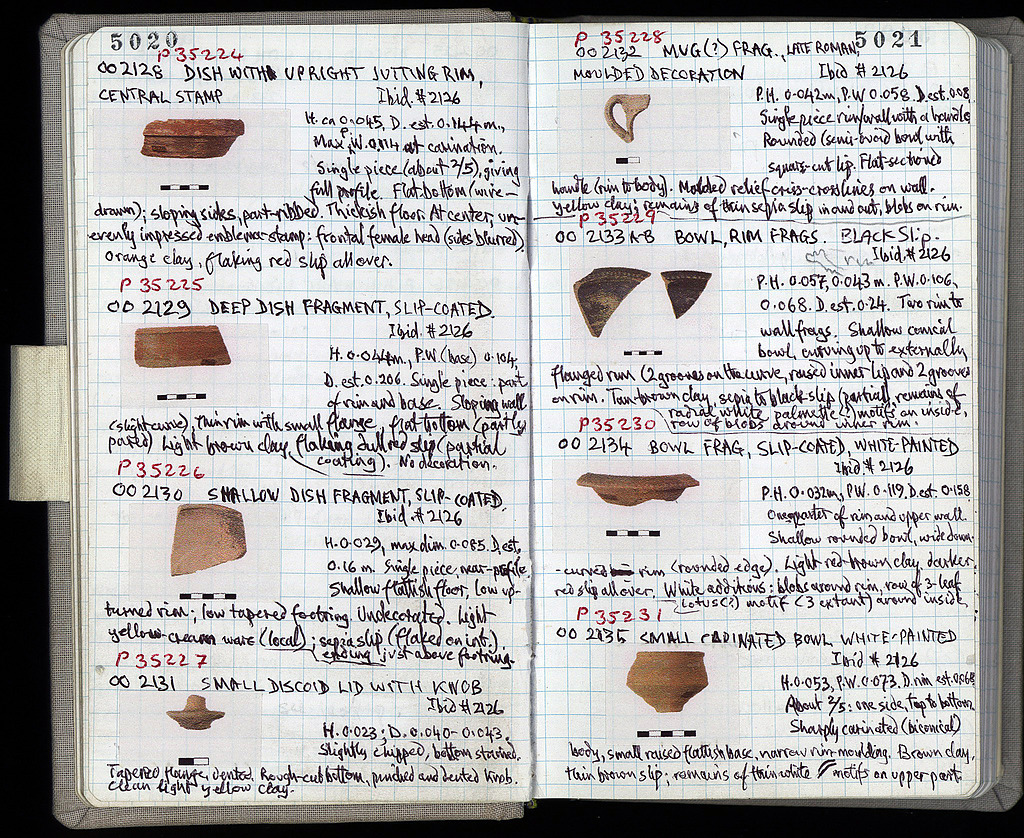 5020
P 35224
OO 2128 DISH WITH UPRIGHT JUTTING RIM,
CENTRAL STAMP Ibid. # 2126
H. ca 0.045, D. est. 0.144m.,
Max. P. W. 0.114 at carination.
Single piece (about 2/5), giving
full profile. Flat bottom (wire-
drawn); sloping sides, part-ribbed. Thickish floor. At center, un-
evenly impressed emblema-stamp: frontal female head (sides blurred).
Orange clay, flaking red slip all over.
P 35225
OO 2129 DEEP DISH FRAGMENT, SLIP-COATED.
Ibid. # 2126
H. 0.044m., P.W (base) 0.104,
D. est. 0.206. Single piece: part
of rim and base. Sloping wall
(slight curve), thin rim with small flange, flat bottom (partly
pared) Light brown clay, flaking dull red slip (partial
coating). No decoration.
P 35226
OO 2130 SHALLOW DISH FRAGMENT, SLIP-COATED
Ibid. # 2126
H. 0.029, max dim. 0.085. D. est.
0.16 m. Single piece, near-profile
Shallow flattish floor, low up-
turned rim; low tapered footring. Undecorated. Light
yellow-cream ware (local); sepia slip (flaked on int.)
ending just above footring.
P 35227
OO 2131 SMALL DISCOID LID WITH KNOB
Ibid # 2126
H. 0.023; D. 0.040-0.043.
Slightly chipped, bottom stained.
Tapered flange, dented. Rough-cut bottom, pinched and dented knob.
Clean light yellow clay.
5021
P 35228
OO 2132 MUG(?) FRAG., LATE ROMAN,
MOULDED DECORATION Ibid # 2126
P.H. 0.042m, P.W 0.058. D. est. 0.08.
Single piece rim/wall with a handle
Rounded (semi-ovoid bowl with
square-cut lip. Flat-sectioned
handle (rim to body). Molded relief criss-cross lines on wall.
Yellow clay; remains of thin sepia slip in and out, blobs on rim.
P 35229
OO 2133 A-B BOWL, RIM FRAGS. BLACK SLIP.
Ibid. # 2126
P.H. 0.057, 0.043 m. P.W. 0.106,
0.068. D. est. 0.24. Two rim to
wall frags. Shallow conical
bowl, curving up to externally
flanged rim (2 grooves on the curve, raised inner lip and 2 grooves
on rim. Tan-brown clay, sepia to black slip (partial), remains of
radial white palmette(?) motifs on inside,
row of blobs around inner rim.
P35230
OO 2134 BOWL FRAG, SLIP-COATED, WHITE-PAINTED
Ibid # 2126
P.H. 0.032m, P.W. 0.119. D. est. 0.158
One quarter of rim and upper wall.
Shallow rounded bowl, wide down-
-curved rim (rounded edge). Light red-brown clay, darker
red slip all over. White additions: blobs around rim, row of 3-leaf
Lotus(?) motif (3 extant) around inside.
P 35231
OO 2135 SMALL CARINATED BOWL WHITE-PAINTED
Ibid # 2126
H. 0.053, P.W. 0.073. D. rim est. 0.068
About 2/5: one side, top to bottom
Sharply carinated (biconical)
body, small raised flattish base, narrow rim-moulding. Brown clay,
thin brown slip; remains of thin white motifs on upper part.